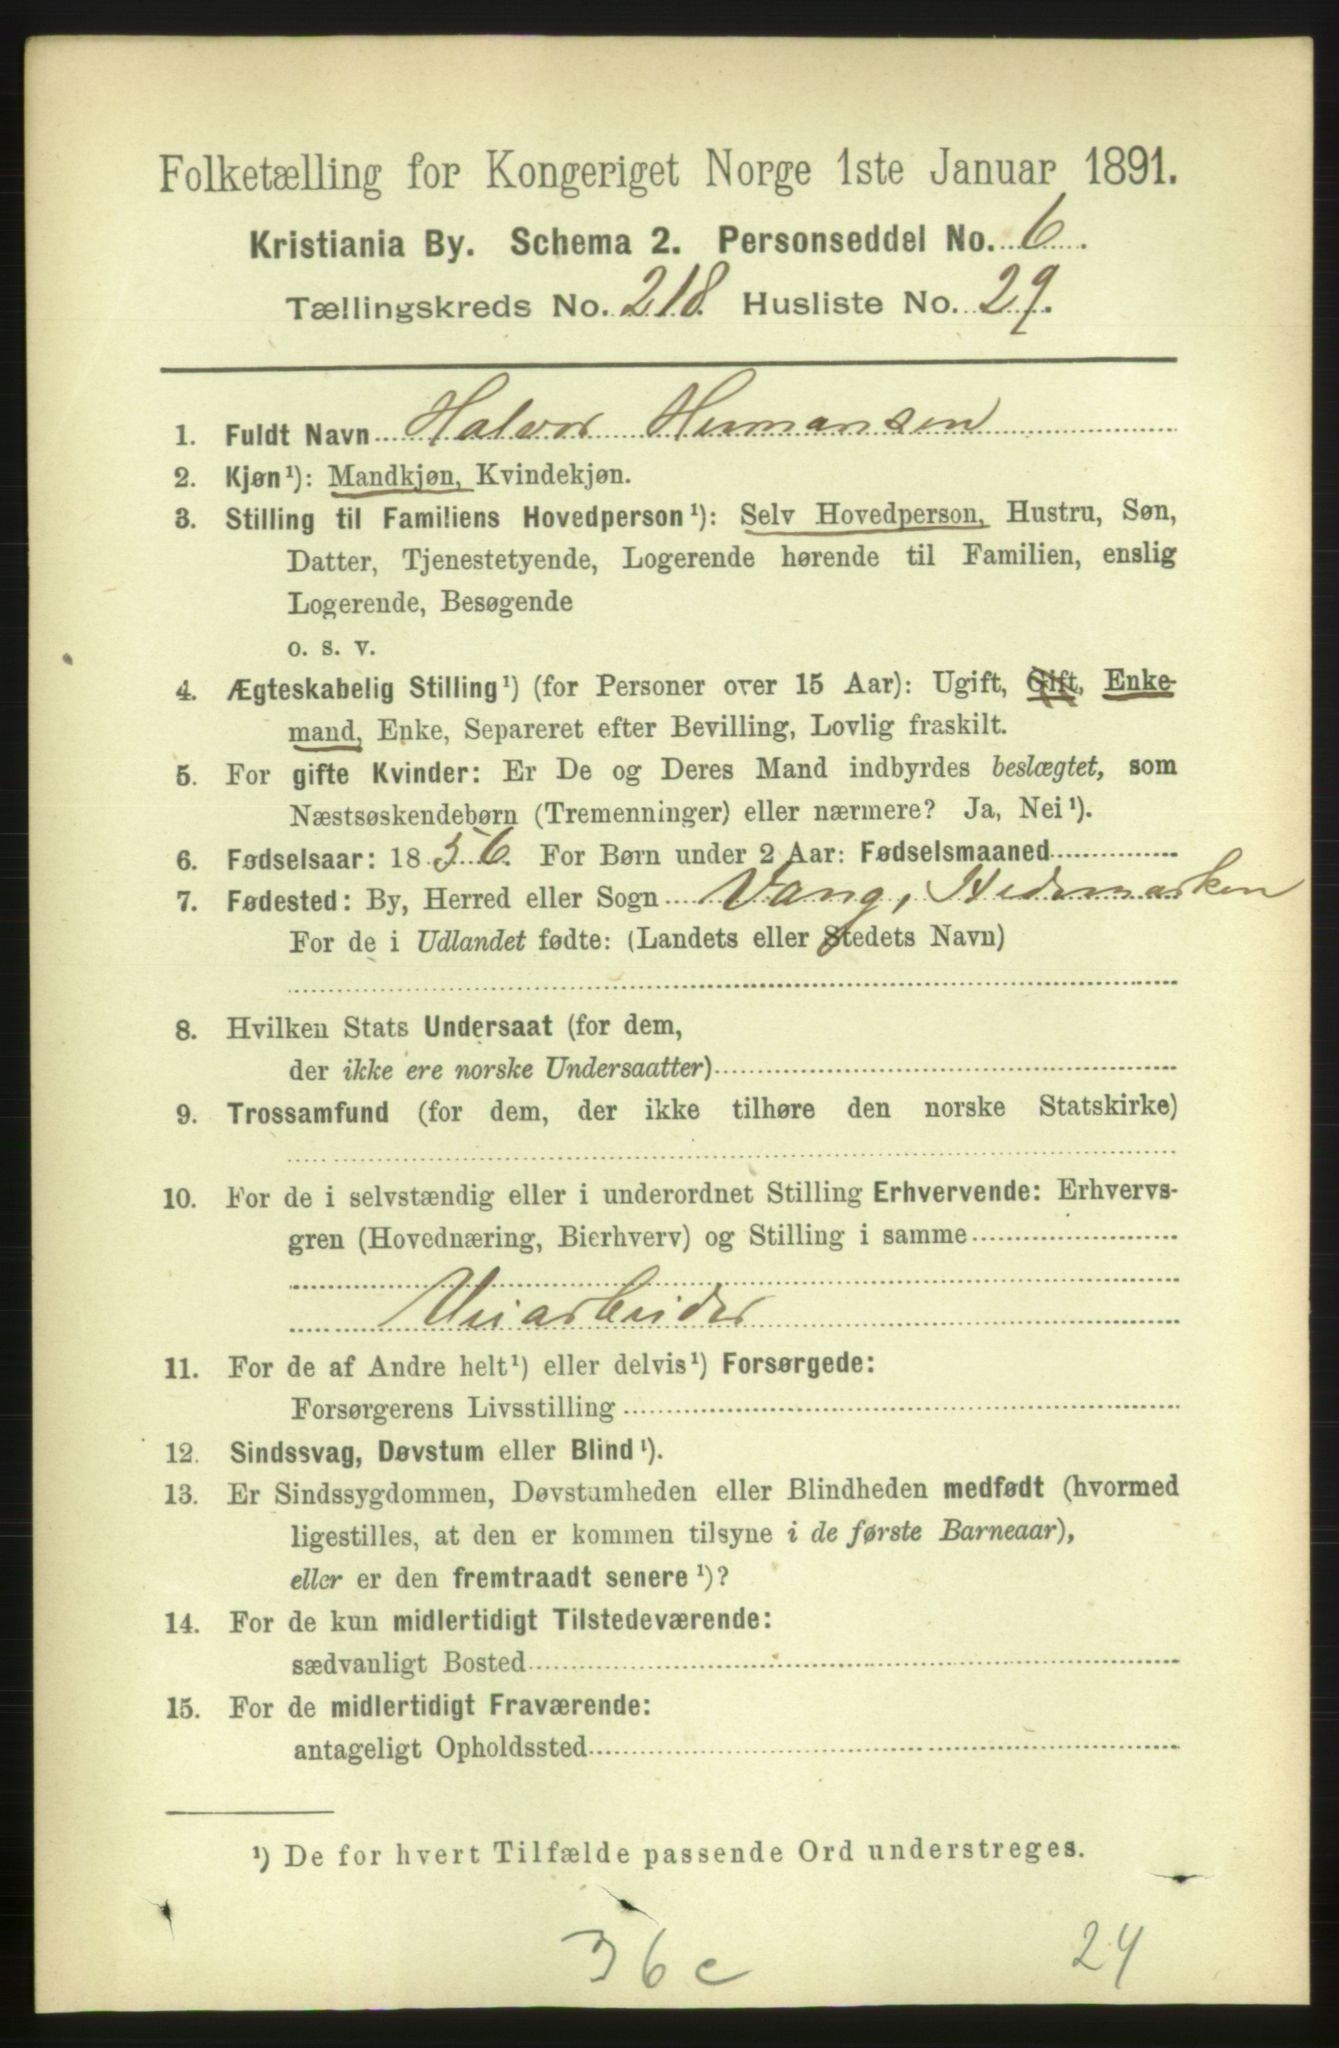 Folketælling for Kongeriget Norge 1ste Januar 1891.
Kristiania By. Schema 2. Personseddel No. 6.
Tællingskreds No. 218. Husliste No. 29.
1. Fuldt Navn Halvor Hermansen
2. Kjøn¹): Mandkjøn, Kvindekjøn.
3. Stilling til Familiens Hovedperson¹): Selv Hovedperson, Hustru, Søn,
Datter, Tjenestetyende, Logerende hørende til Familien, enslig
Logerende, Besøgende
o. s. v.
4. Ægteskabelig Stilling¹) (for Personer over 15 Aar): Ugift, Gift, Enke-
mand, Enke, Separeret efter Bevilling, Lovlig fraskilt.
5. For gifte Kvinder: Er De og Deres Mand indbyrdes beslægtet, som
Næstsøskendebørn (Tremenninger) eller nærmere? Ja, Nei¹).
6. Fødselsaar: 1856. For Børn under 2 Aar: Fødselsmaaned
7. Fødested: By, Herred eller Sogn Vang, Hedemarken
For de i Udlandet fødte: (Landets eller Stedets Navn)
8. Hvilken Stats Undersaat (for dem,
der ikke ere norske Undersaatter)
9. Trossamfund (for dem, der ikke tilhøre den norske Statskirke)
10. For de i selvstændig eller i underordnet Stilling Erhvervende: Erhvervs-
gren (Hovednæring, Bierhverv) og Stilling i samme
Veiarbeider
11. For de af Andre helt¹) eller delvis¹) Forsørgede:
Forsørgerens Livsstilling
12. Sindssvag, Døvstum eller Blind¹).
13. Er Sindssygdommen, Døvstumheden eller Blindheden medfødt (hvormed
ligestilles, at den er kommen tilsyne i de første Barneaar),
eller er den fremtraadt senere¹)?
14. For de kun midlertidigt Tilstedeværende:
sædvanligt Bosted
15. For de midlertidigt Fraværende:
antageligt Opholdssted
¹) De for hvert Tilfælde passende Ord understreges.
36c 24